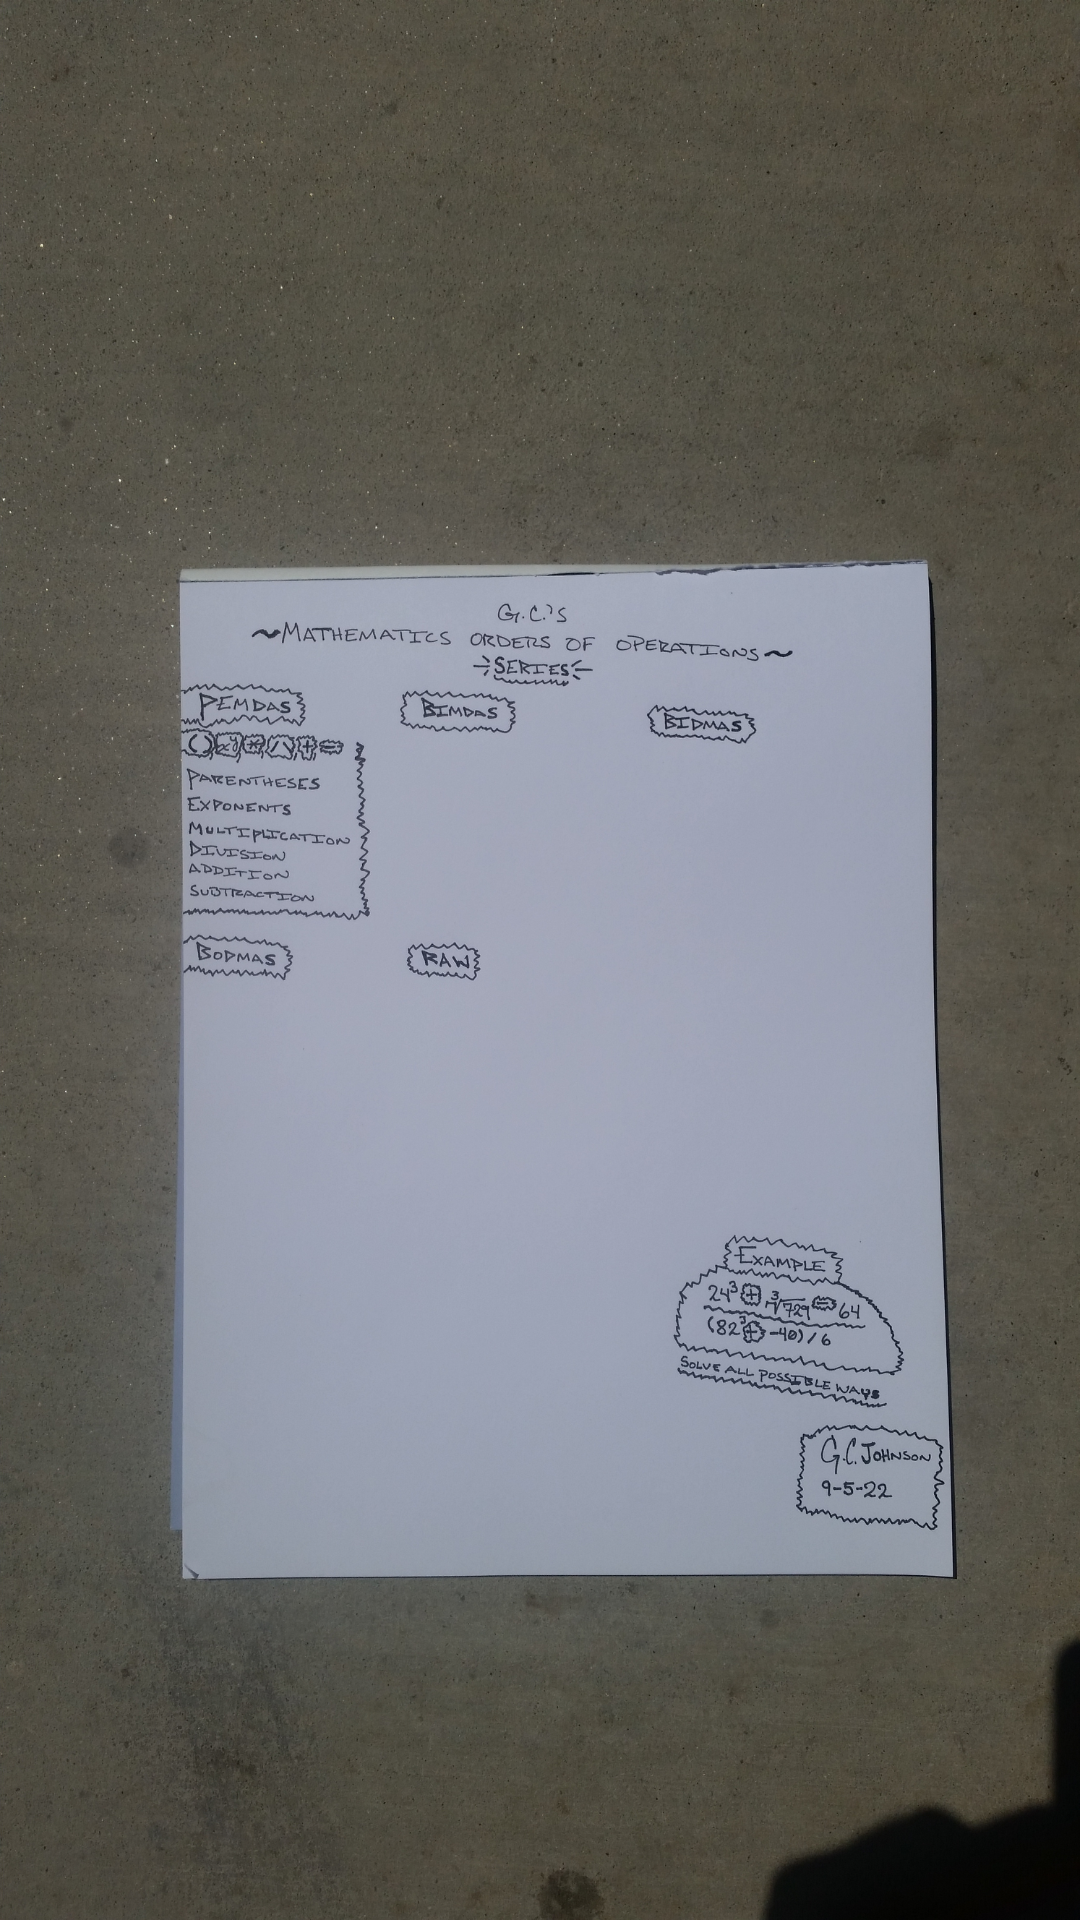 G.C.'S
~MATHEMATICS ORDERS OF OPERATIONS~
SERIES
PEMDAS
BIMDAS
BIDMAS
() xy * / + =
PARENTHESES
EXPONENTS
MULTIPLICATION
DIVISION
ADDITION
SUBTRACTION
BODMAS
RAW
EXAMPLE
24³ + ³√729 = 64
(82³ + -40) / 6
SOLVE ALL POSSIBLE WAYS
G.C. JOHNSON
9-5-22